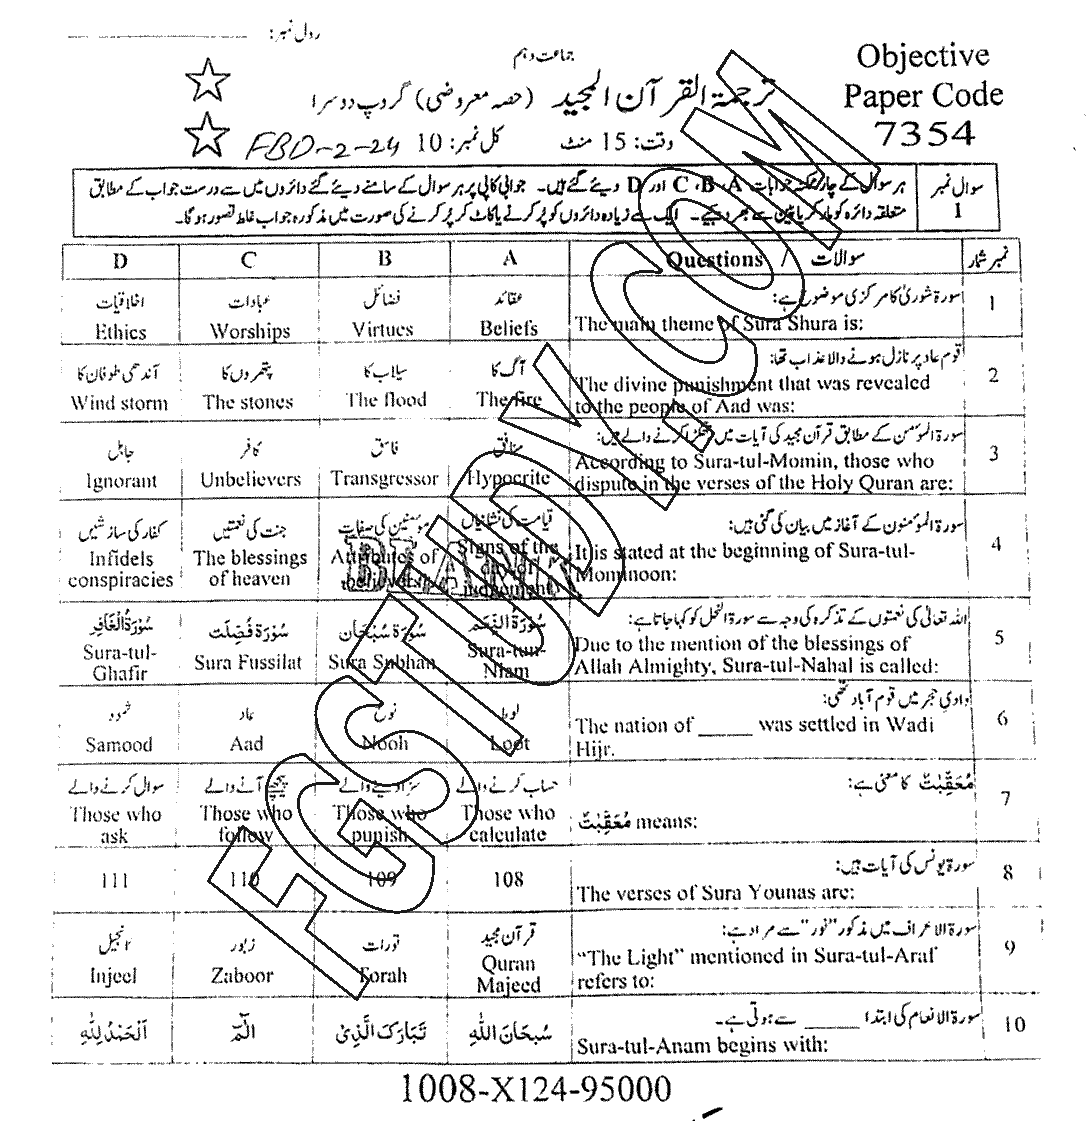 رول نمبر: ____________
جماعت دہم
Objective
Paper Code
7354
ترجمۃ القرآن المجید (حصہ معروضی) گروپ دوسرا
وقت: 15 منٹ کل نمبر: 10
FBD-2-24
سوال نمبر 1
ہر سوال کے چار ممکنہ جوابات A، B، C اور D دیئے گئے ہیں۔ جوابی کاپی پر ہر سوال کے سامنے دیئے گئے دائروں میں سے درست جواب کے مطابق
متعلقہ دائرہ کو مارکر یا پین سے بھر دیجیے۔ ایک سے زیادہ دائروں کو پُر کرنے یا کاٹ کر پُر کرنے کی صورت میں مذکورہ جواب غلط تصور ہو گا۔
D C B A Questions / سوالات نمبر شمار
1
سورۃ شوریٰ کا مرکزی موضوع ہے:
The main theme of Sura Shura is:
عقائد
Beliefs
فضائل
Virtues
عبادات
Worships
اخلاقیات
Ethics
2
قوم عاد پر نازل ہونے والا عذاب تھا:
The divine punishment that was revealed
to the people of Aad was:
آگ کا
The fire
سیلاب کا
The flood
پتھروں کا
The stones
آندھی طوفان کا
Wind storm
3
سورۃ المؤمن کے مطابق قرآن مجید کی آیات میں جھگڑا کرنے والے ہیں:
According to Sura-tul-Momin, those who
dispute in the verses of the Holy Quran are:
منافق
Hypocrite
فاسق
Transgressor
کافر
Unbelievers
جاہل
Ignorant
4
سورۃ المؤمنون کے آغاز میں بیان کی گئی ہیں:
It is stated at the beginning of Sura-tul-
Mominoon:
قیامت کی نشانیاں
Signs of the
day of
judgement
مؤمنین کی صفات
Attributes of
believers
جنت کی نعمتیں
The blessings
of heaven
کفار کی سازشیں
Infidels
conspiracies
5
اللہ تعالیٰ کی نعمتوں کے تذکرہ کی وجہ سے سورۃ النحل کو کہا جاتا ہے:
Due to the mention of the blessings of
Allah Almighty, Sura-tul-Nahal is called:
سُوْرَۃُ النِّعَم
Sura-tun-
Niam
سُوْرَۃ سُبْحَان
Sura Subhan
سُوْرَۃ فُصِّلَت
Sura Fussilat
سُوْرَۃُ الْغَافِر
Sura-tul-
Ghafir
6
وادیِ حجر میں قوم آباد تھی:
The nation of _____ was settled in Wadi
Hijr.
لوط
Loot
نوح
Nooh
عاد
Aad
ثمود
Samood
7
مُعَقِّبٰتٌ کا معنی ہے:
مُعَقِّبٰتٌ means:
حساب کرنے والے
Those who
calculate
سزا دینے والے
Those who
punish
پیچھے آنے والے
Those who
follow
سوال کرنے والے
Those who
ask
8
سورۃ یونس کی آیات ہیں:
The verses of Sura Younas are:
108
109
110
111
9
سورۃ الاعراف میں مذکور "نور" سے مراد ہے:
"The Light" mentioned in Sura-tul-Araf
refers to:
قرآن مجید
Quran
Majeed
تورات
Torah
زبور
Zaboor
انجیل
Injeel
10
سورۃ الانعام کی ابتدا _____ سے ہوتی ہے۔
Sura-tul-Anam begins with:
سُبْحَانَ اللّٰہِ
تَبَارَکَ الَّذِیْ
الٓمّٓ
اَلْحَمْدُ لِلّٰہِ
1008-X124-95000
FGSTUDY.COM